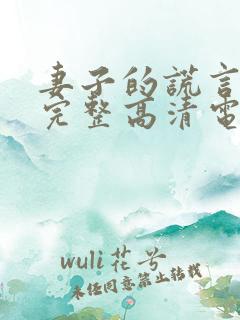 妻子的謊言
完整高清電
wuli花兮
未经同意禁止转载